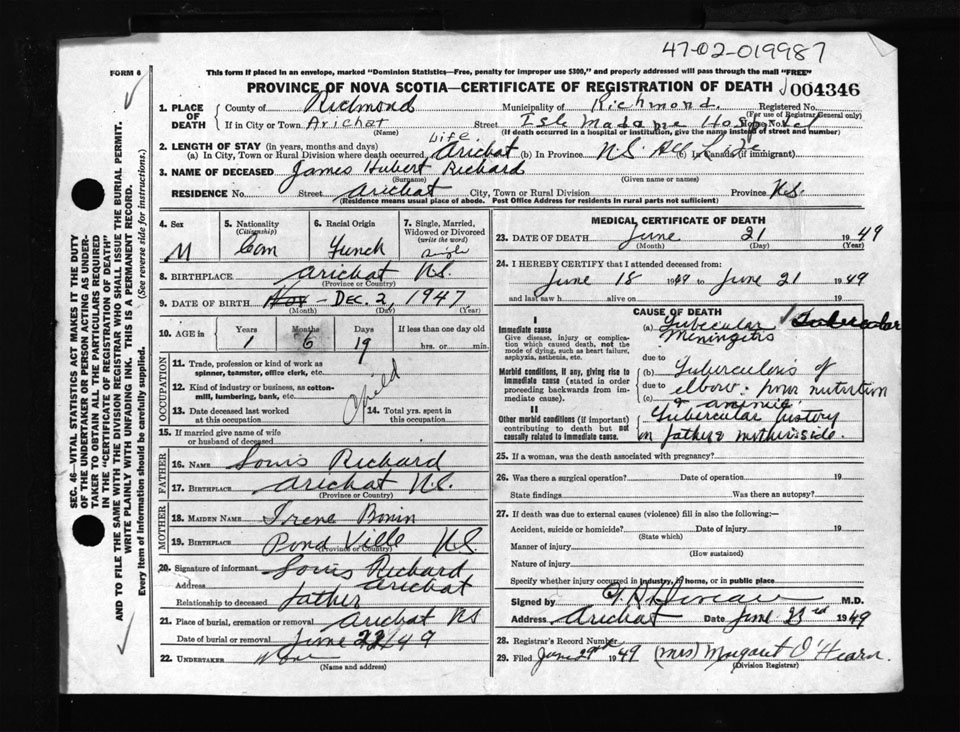 47-02-019987
FORM 6
This form if placed in an envelope, marked "Dominion Statistics—Free, penalty for improper use $300," and properly addressed will pass through the mail "FREE"
PROVINCE OF NOVA SCOTIA—CERTIFICATE OF REGISTRATION OF DEATH 004346
1. PLACE OF DEATH County of Richmond Municipality of Richmond. Registered No.
(For use of Registrar General only)
If in City or Town Arichat Street Isle Madame Hospital
(Name) (If death occurred in a hospital or institution, give the name instead of street and number)
2. LENGTH OF STAY (in years, months and days) Life
(a) In City, Town or Rural Division where death occurred Arichat (b) In Province N.S. All Life (c) In Canada (if immigrant)
3. NAME OF DECEASED James Hubert Richard
(Surname) (Given name or names)
RESIDENCE No. Street Arichat City, Town or Rural Division Province N.S.
(Residence means usual place of abode. Post Office Address for residents in rural parts not sufficient)
4. Sex 5. Nationality (Citizenship) 6. Racial Origin 7. Single, Married, Widowed or Divorced (write the word)
M Can French Single
8. BIRTHPLACE Arichat N.S.
(Province or Country)
9. DATE OF BIRTH Nov - DEC. 2, 1947
(Month) (Day) (Year)
10. AGE in Years Months Days If less than one day old
1 6 19 hrs. or min.
OCCUPATION
11. Trade, profession or kind of work as spinner, teamster, office clerk, etc.
12. Kind of industry or business, as cotton-mill, lumbering, bank, etc.
Child
13. Date deceased last worked at this occupation 14. Total yrs. spent in this occupation
15. If married give name of wife or husband of deceased
FATHER
16. NAME Louis Richard
17. BIRTHPLACE Arichat N.S.
(Province or Country)
MOTHER
18. MAIDEN NAME Irene Bonin
19. BIRTHPLACE Pond Ville N.S.
(Province or Country)
20. Signature of informant Louis Richard
Address Arichat
Relationship to deceased father
21. Place of burial, cremation or removal Arichat NS
Date of burial or removal June 22/49
22. UNDERTAKER None
(Name and address)
MEDICAL CERTIFICATE OF DEATH
23. DATE OF DEATH June 21 1949
(Month) (Day) (Year)
24. I HEREBY CERTIFY that I attended deceased from:
June 18 1949 to June 21 1949
and last saw h alive on 19
CAUSE OF DEATH
I
Immediate cause
Give disease, injury or complication which caused death, not the mode of dying, such as heart failure, asphyxia, asthenia, etc.
(a) Tubercular Meningitis
due to
Morbid conditions, if any, giving rise to immediate cause (stated in order proceeding backwards from immediate cause)
(b) Tuberculosis of
due to elbow. poor nutrition
(c) & anemic
II
Other morbid conditions (if important) contributing to death but not causally related to immediate cause.
Tubercular history
in father & mother's side.
25. If a woman, was the death associated with pregnancy?
26. Was there a surgical operation? Date of operation 19
State findings Was there an autopsy?
27. If death was due to external causes (violence) fill in also the following:—
Accident, suicide or homicide? Date of injury 19
(State which)
Manner of injury
(How sustained)
Nature of injury
Specify whether injury occurred in industry, in home, or in public place
Signed by M.D.
Address Arichat Date June 23rd 1949
28. Registrar's Record Number
29. Filed June 29th 1949 (Mrs) Margaret O'Hearn.
(Division Registrar)
SEC. 46—VITAL STATISTICS ACT MAKES IT THE DUTY
OF THE UNDERTAKER OR PERSON ACTING AS UNDER-
TAKER TO OBTAIN ALL THE PARTICULARS REQUIRED
IN THE "CERTIFICATE OF REGISTRATION OF DEATH"
AND TO FILE THE SAME WITH THE DIVISION REGISTRAR WHO SHALL ISSUE THE BURIAL PERMIT.
WRITE PLAINLY WITH UNFADING INK. THIS IS A PERMANENT RECORD.
Every item of information should be carefully supplied. (See reverse side for instructions.)